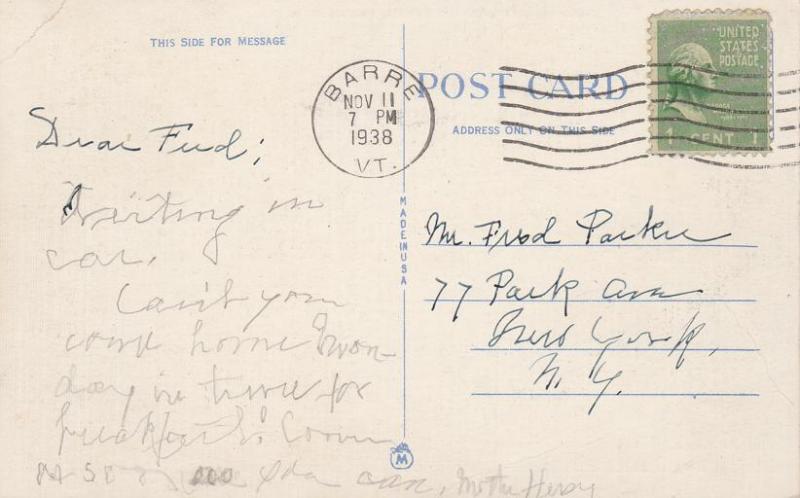 THIS SIDE FOR MESSAGE
BARRE
NOV 11
7 PM
1938
VT.
POST CARD
ADDRESS ONLY ON THIS SIDE
UNITED
STATES
POSTAGE
1 CENT 1
MADE IN USA
Dear Fred;
Writing in
car.
Can't you
come home Mon-
day in time for
breakfast?
Mr. Fred Parker
77 Park Ave
New York,
N. Y.
M